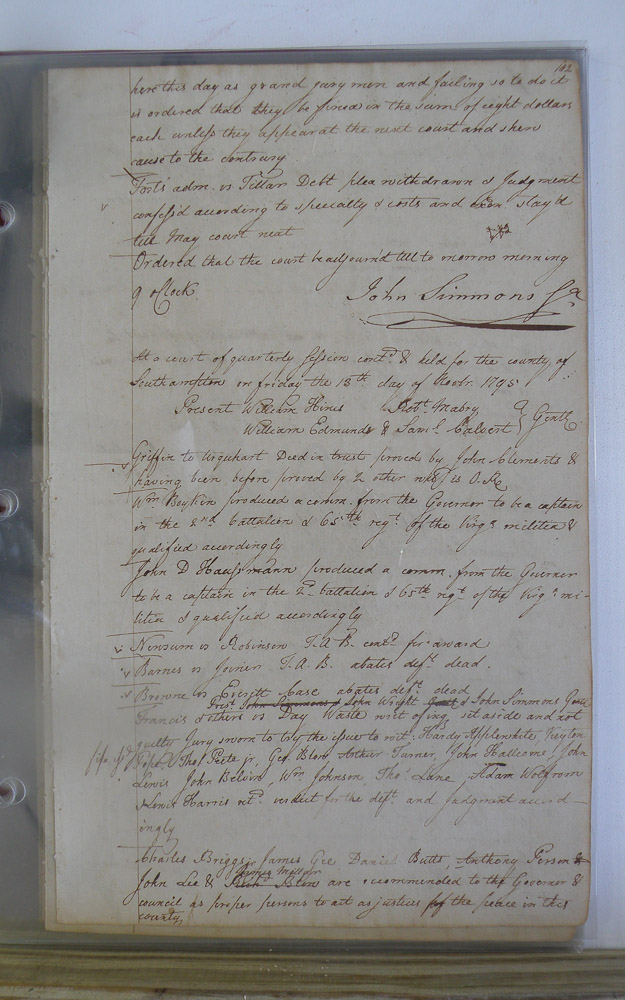 102
here this day as grand jury men and failing so to do it
is ordered that they be fined in the sum of eight dollars
each unless they appear at the next court and shew
cause to the contrary
Forts adm. vs Tillar Debt plea withdrawn & Judgment
confess'd according to specialty & costs and stay'd
till May court next
Ordered that the court be adjourn'd till to morrow morning
9 oClock.
John Simmons
At a court of quarterly Session cont.d & held for the county of
Southampton on friday the 13th day of Novbr. 1795
Present William Hines Robt. Mabry
William Edmunds & Saml. Calvert } Gentl.
Griffin to Urquhart Deed in trust proved by John Clements &
having been before proved by 2 other is O.R.
Wm Boykin produced a comm. from the Governor to be a captain
in the 2nd battalion & 65th regt. of the Virga militia &
qualified accordingly
John D Haussmann produced a comm. from the Governor
to be a captain in the 2d. battalion & 65th regt. of the Virga mi-
litia & qualified accordingly
Newsum vs Robinson T.A.B. contd. for award
Barnes vs Joiner T.A.B. abates deft. dead.
Browne vs Everitt Case abates deft. dead
Prest. John Simmons & John Wright Gent & John Simmons Gent
Francis & others vs Day Waste writ of inq. set aside and not
guilty Jury sworn to try the issue to wit: Hardy Applewhite,
Thos. Peete jr, Geo. Blow Arthur Turner, John John
Lewis John Belvin, Wm Johnson, Thos. Lane, Adam Wolfrom
& Lewis Harris retd. verdict for the deft. and judgment accord-
ingly
Charles Briggs, James Gee Daniel Butts, Anthony Person &
James
John Lee & Richd. Blow are recommended to the Governor &
council as proper persons to act as justices of the peace in this
county,